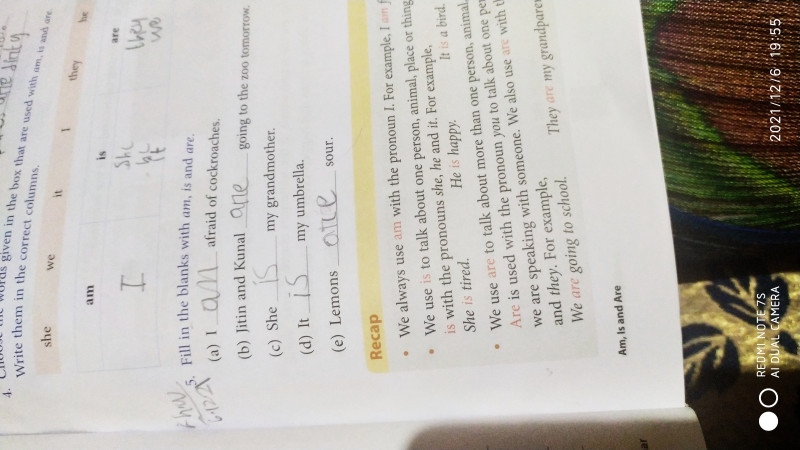 4. Choose the words given in the box that are used with am, is and are.
Write them in the correct columns.
she we it I they he
am is are
I she they
he we
it
5. Fill in the blanks with am, is and are.
(a) I am afraid of cockroaches.
(b) Jitin and Kunal are going to the zoo tomorrow.
(c) She is my grandmother.
(d) It is my umbrella.
(e) Lemons are sour.
Recap
• We always use am with the pronoun I. For example, I am
• We use is to talk about one person, animal, place or thing
is with the pronouns she, he and it. For example,
She is tired. He is happy. It is a bird.
• We use are to talk about more than one person, animal,
Are is used with the pronoun you to talk about one
we are speaking with someone. We also use are with
and they. For example,
We are going to school. They are my
Am, Is and Are
REDMI NOTE 7S
AI DUAL CAMERA
2021/12/6 19:55